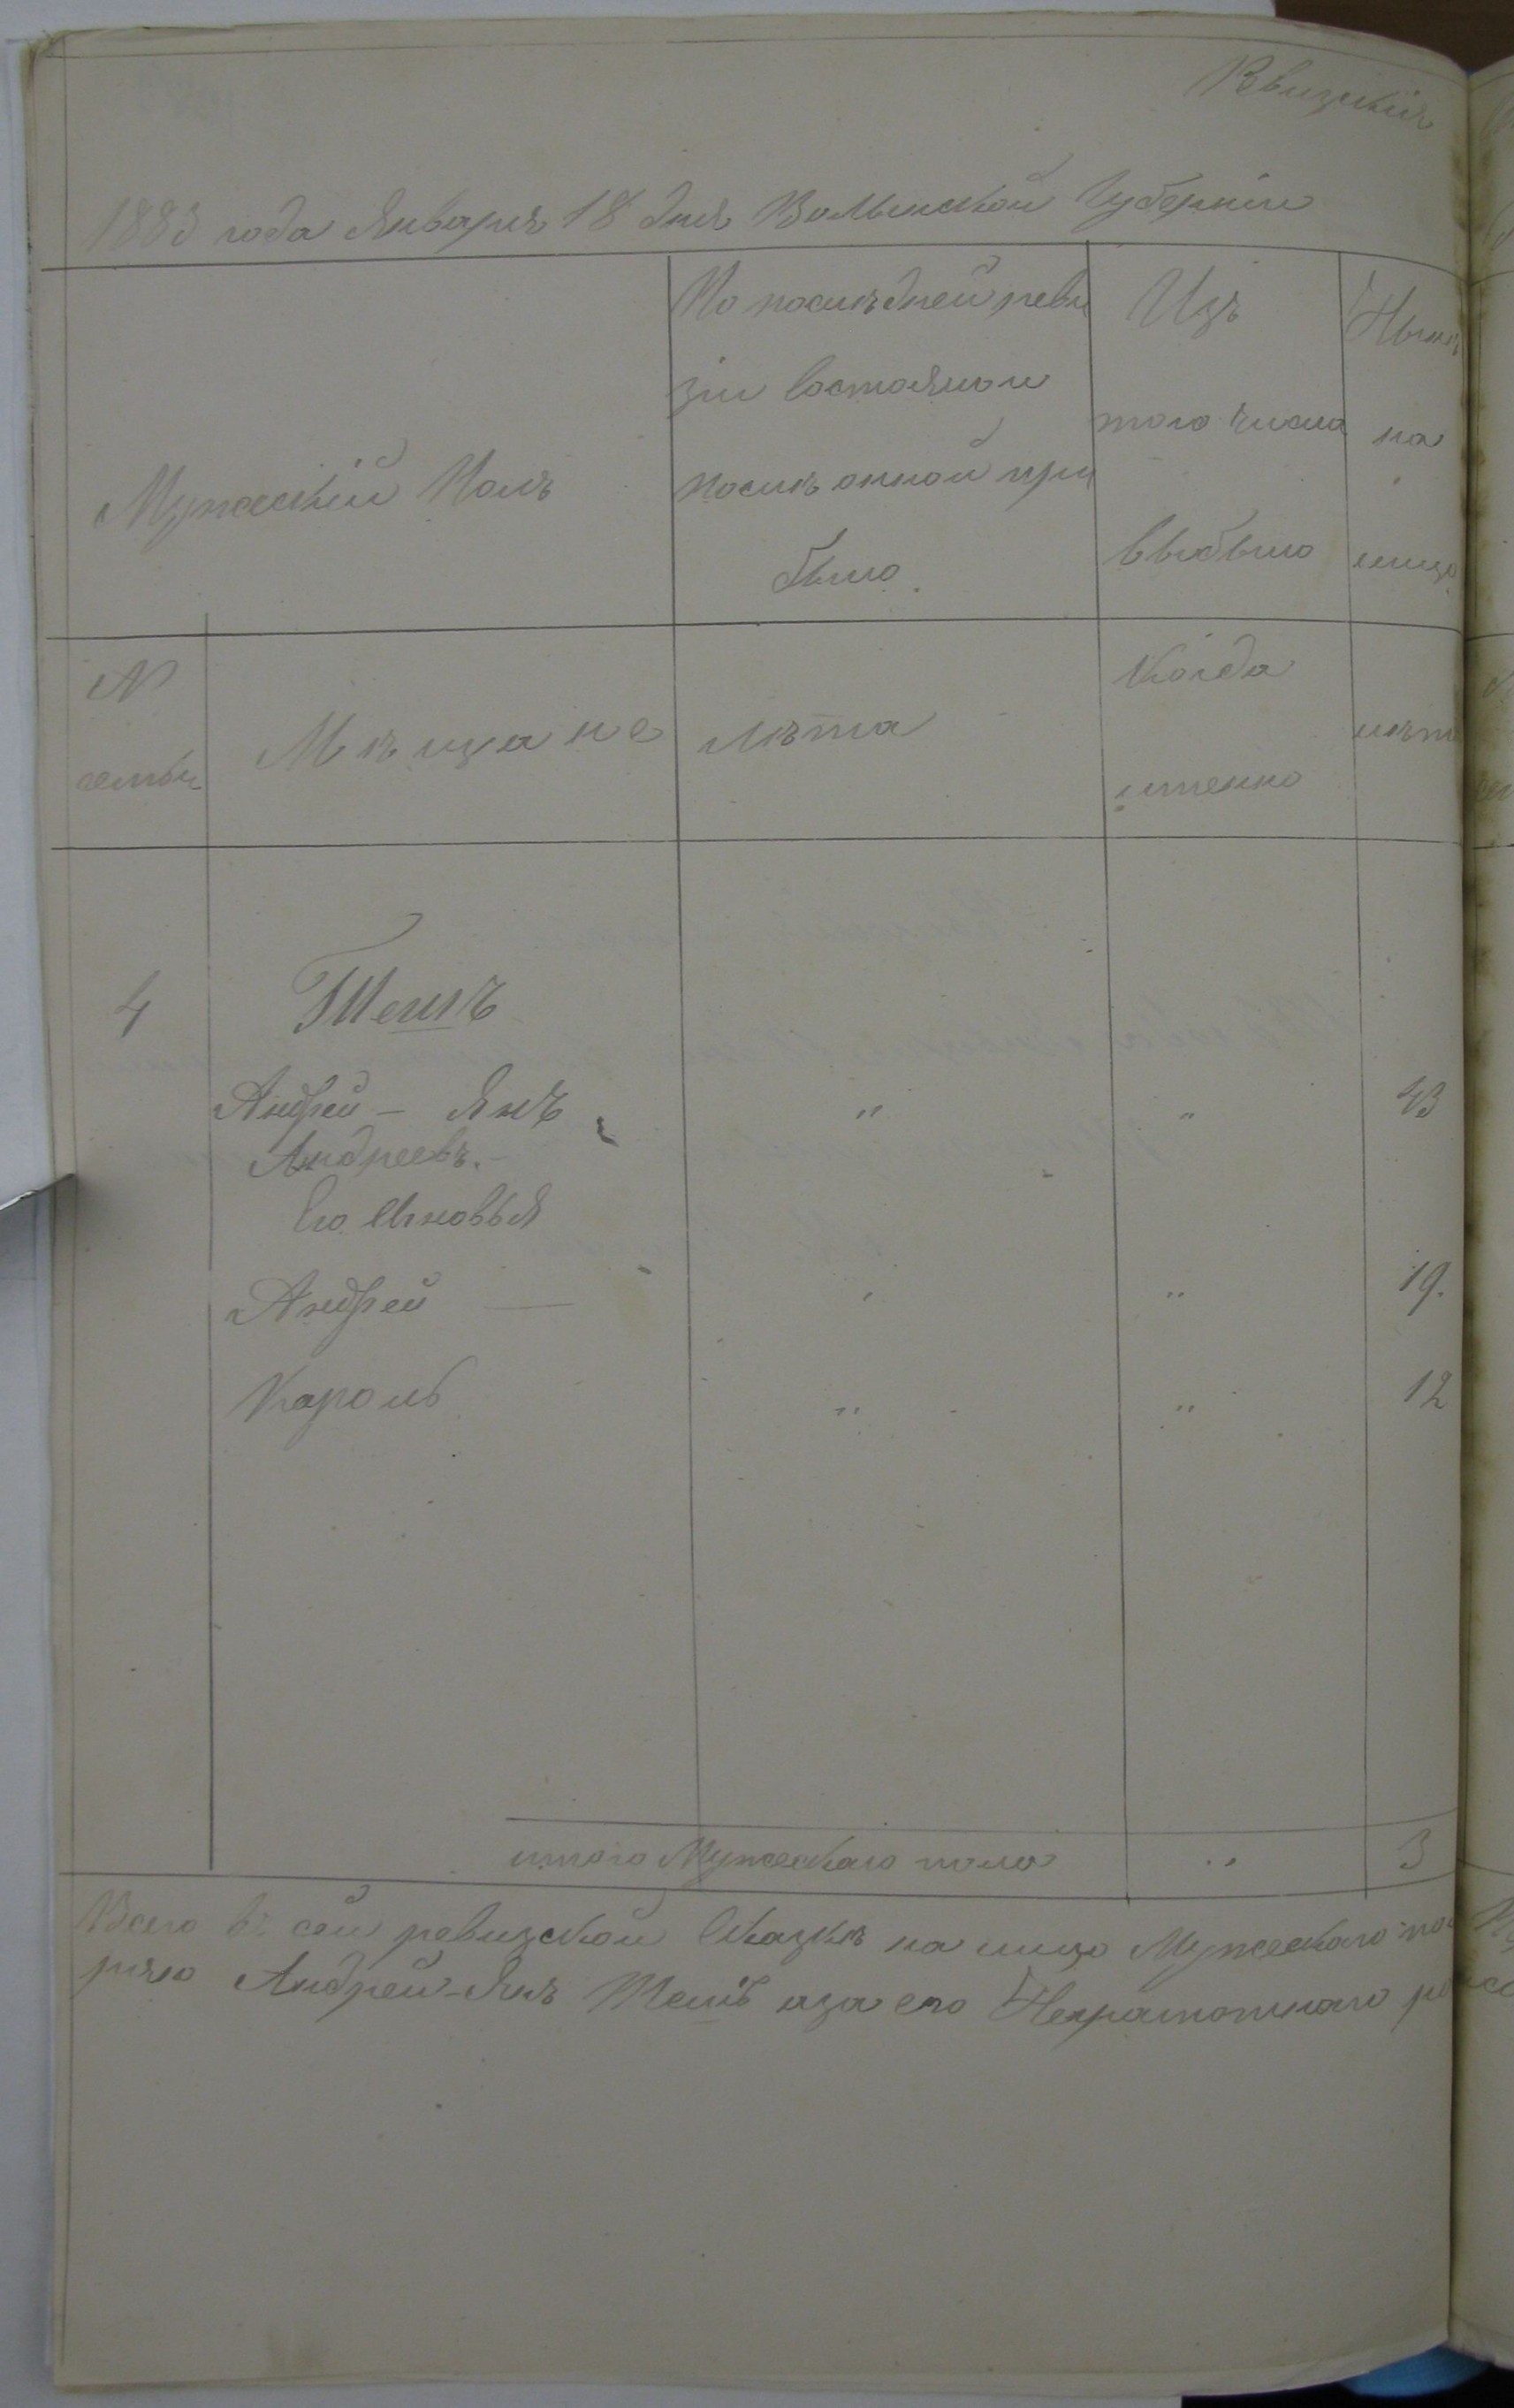 Рвизскія
1883 года Января 18 дня Волынской Губерніи
Мужескій Полъ
По послѣдней реви
зіи состояло и
послѣ онной при
было
Изъ
того числа
выбыло
Нынѣ
на
лицо
№
семьи
Мѣщане
лѣта
Когда
именно
лѣт
4
Андрей - Янъ " " 43
Андреевъ.-
Его Сыновья
Андрей " 19.
Кароль " " 12
итого Мужескаго пола " 3
Всего въ сей ревизской Сказкѣ на лицо Мужескаго по
Андрей-Янъ аза его Неграмотнаго